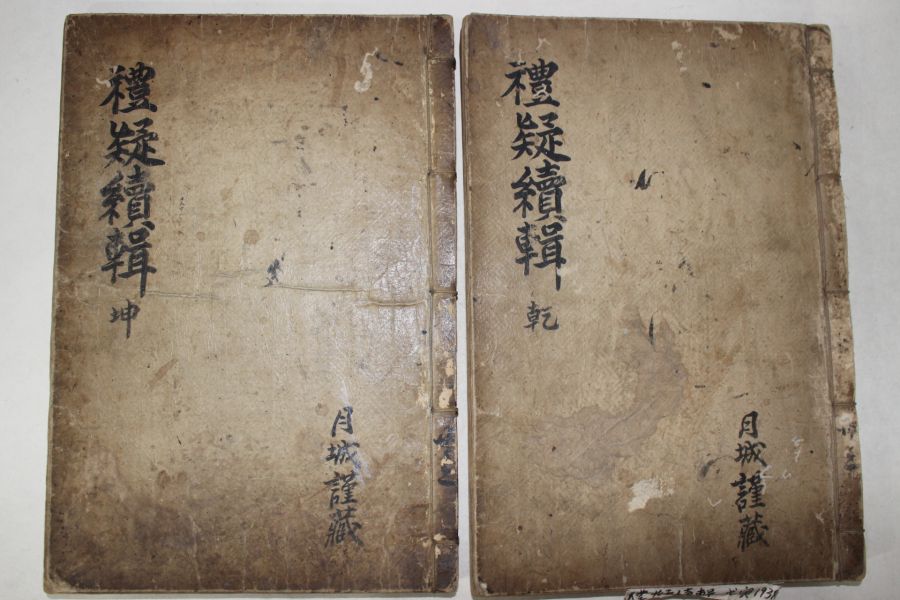 禮疑續輯
乾
月城謹藏
禮疑續輯
坤
月城謹藏